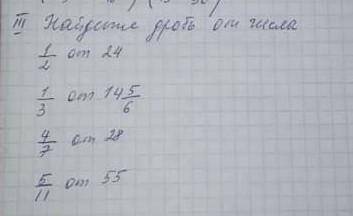 III Найдите дробь от числа
1/2 от 24
1/3 от 14 5/6
4/7 от 28
5/11 от 55